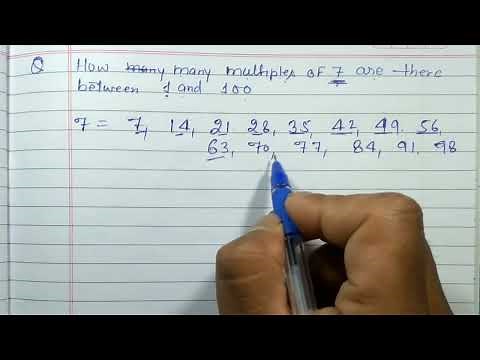 Q How many many multiples of 7 are there
between 1 and 100
7 = 7, 14, 21 28, 35, 42, 49. 56,
63, 70, 77, 84, 91, 98